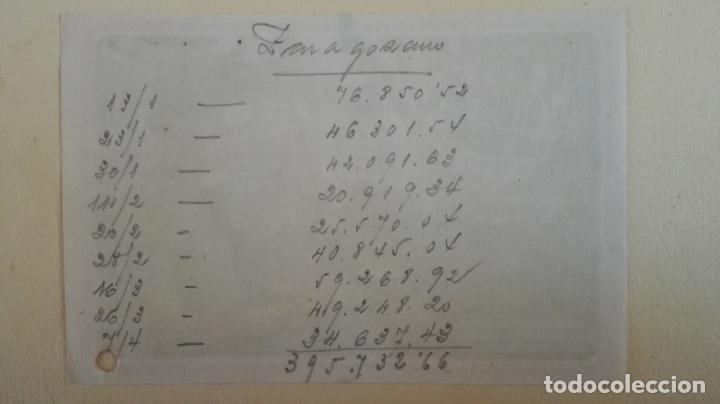 Zaragozano
13/1 — 76.850'52
23/1 — 46.301.54
30/1 — 42.091.63
14/2 — 20.919.34
20/2 - 25.570.04
28/2 — 40.845.04
16/3 - 59.268.92
26/3 - 49.248.20
7/4 — 34.637.43
395.732'66
todocoleccion
todocoleccion.net